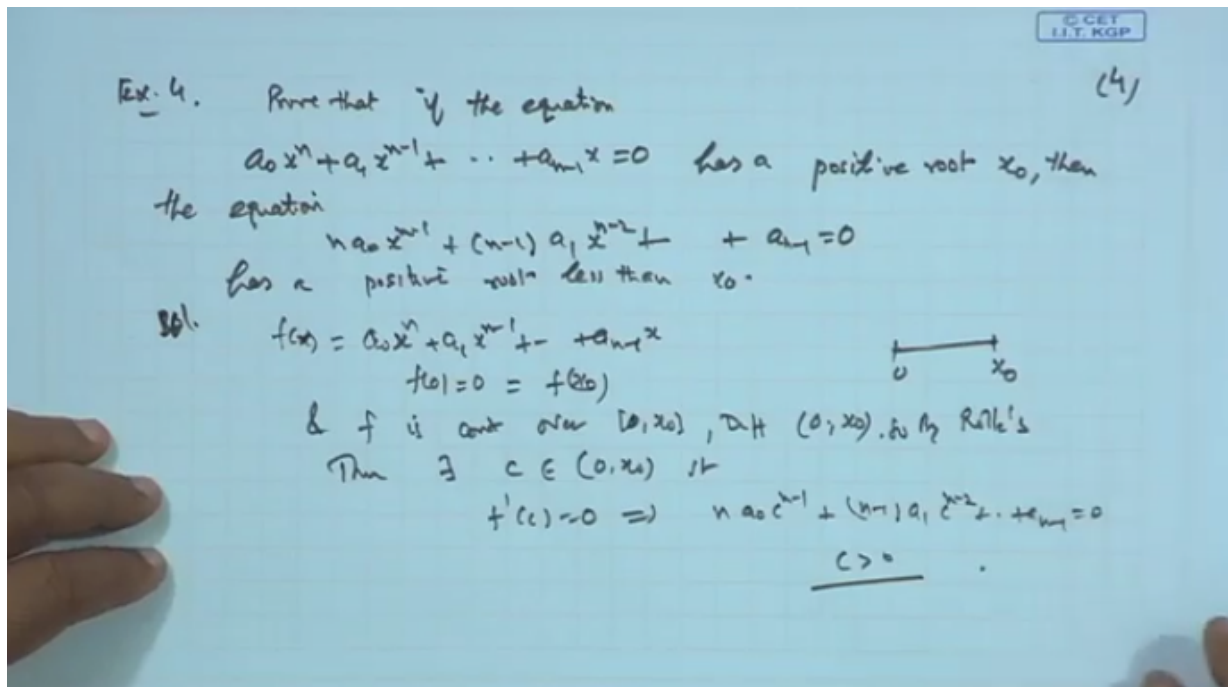 © CET
I.I.T. KGP
(4)
Ex. 4. Prove that if the equation
a₀xⁿ + a₁xⁿ⁻¹ + .. + aₙ₋₁x = 0 has a positive root x₀, then
the equation
n a₀xⁿ⁻¹ + (n-1) a₁ xⁿ⁻² + + aₙ₋₁ = 0
has a positive root less than x₀.
Sol. f(x) = a₀xⁿ + a₁xⁿ⁻¹ + - + aₙ₋₁x
f(0) = 0 = f(x₀)
0 x₀
& f is cont over [0, x₀], Diff (0, x₀). So By Rolle's
Thm ∃ c ∈ (0, x₀) st
f'(c) = 0 ⇒ n a₀cⁿ⁻¹ + (n-1) a₁ cⁿ⁻² + .. + aₙ₋₁ = 0
c > 0 .